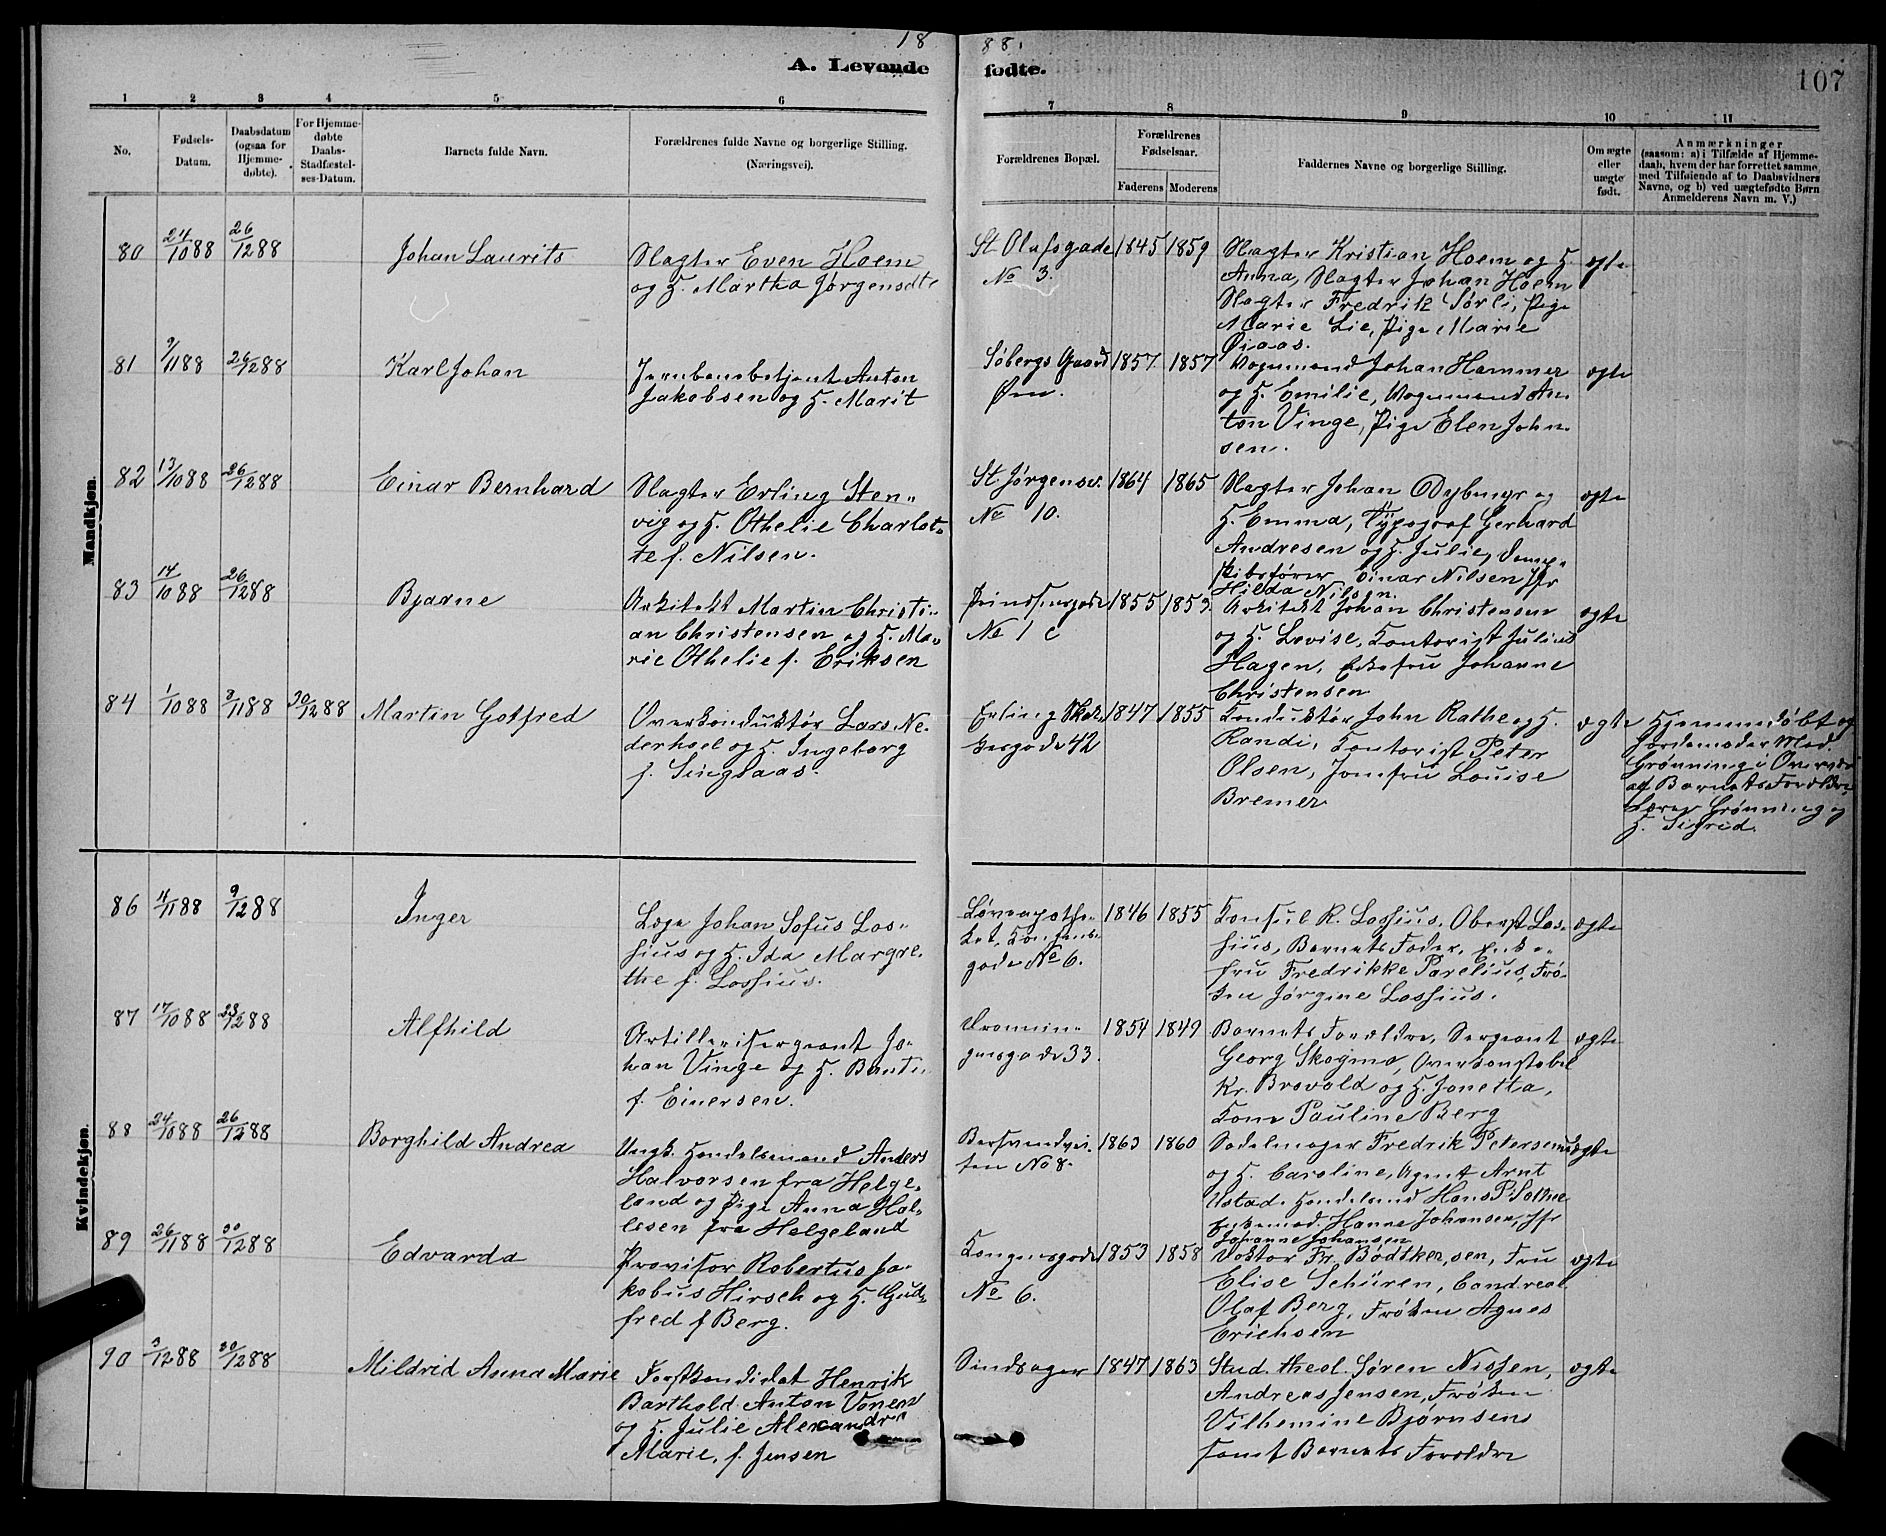 18 88.
A. Levende fødte.
107
1 2 3 4 5 6 7 8 9 10 11
No.
Fødsels-
Datum.
Daabsdatum
(ogsaa for
Hjemme-
døbte).
For Hjemme-
døbte
Daabs-
Stadfæstel-
ses-Datum.
Barnets fulde Navn.
Forældrenes fulde Navne og borgerlige Stilling.
(Næringsvei).
Forældrenes Bopæl.
Forældrenes
Fødselsaar.
Faderens Moderens
Faddernes Navne og borgerlige Stilling.
Om ægte
eller
uægte
født.
Anmærkninger
(saasom: a) i Tilfælde af Hjemme-
daab, hvem der har forrettet samme,
med Tilføiende af to Daabsvidners
Navne, og b) ved uægtefødte Børn
Anmelderens Navn m. V.)
Mandkjøn.
80 24/10 88 26/12 88 Johan Laurits
Slagter Even Hoem
og H. Martha Jørgensdt.
St Olafsgade
No 3.
1845 1859
Slagter Kristian Hoem og H.
Anna, Slagter Johan Hoem
Slagter Fredrik Sørli, Pige
Marie Lie, Pige Marie
Øiaas.
ægte
81 9/11 88 26/12 88 Karl Johan
Jernbanebetjent Anton
Jakobsen og H. Marit
Søbergs Gaard
Øen.
1857 1857
Vognmand Johan Hammer
og H. Emilie, Vognmand An
ton Vinge, Pige Elen John-
sen.
ægte
82 13/10 88 26/12 88 Einar Bernhard
Slagter Erling Sten-
vig og H. Othelie Charlot-
te f. Nilsen.
St. Jørgensv.
No 10.
1864 1865
Slagter Johan Dybmyr og
H. Emma, Typograf Gerhard
Andresen og H. Julie, Damp-
skibsfører Einar Nilsen Jfr
Hilda Nilsen.
ægte
83 14/10 88 26/12 88 Bjarne
Arkitekt Martin Christi-
an Christensen og H. Ma-
rie Othelie f. Eriksen
Prinssensgade
No 1 c
1855 1853
Arkitekt Johan Christensen
og H. Lovise, Kontorist Julius
Hagen, Enkefru Johanne
Christensen
ægte
84 1/10 88 8/11 88 30/12 88 Martin Gotfred
Overkonduktør Lars Ne-
derhoel og H. Ingeborg
f. Singsaas.
Erling Skak-
kesgade 42
1847 1855
Konduktør John Rathe og H.
Randi, Kontorist Peter
Olsen, Jomfru Louise
Bremer
ægte
Hjemmedøbt af
Jordemoder Mad.
Grønning i Overvær
af Barnets Forældre
Lærer Grønning og
H. Sigrid.
Kvindekjøn.
86 4/11 88 9/12 88 Inger
Læge Johan Sofus Los-
sius og H. Ida Margre-
the f. Lossius.
Løveapothe-
ket, Kongens-
gade No 6.
1846 1855
Konsul R. Lossius, Oberst Los-
sius, Barnets Fader, Enke-
fru Fredrikke Parelius, Frø-
ken Jørgine Lossius.
ægte
87 17/10 88 23/12 88 Alfhild
Artillerisergeant Jo-
han Vinge og H.
f. Einersen.
Dronnin-
gensgade 33.
1854 1849
Barnets Forældre, Sergeant
Georg Skogmo, Overkonstabel
Kr. Brovold og H. Janetta,
Kone Pauline Berg
ægte
88 24/10 88 26/12 88 Borghild Andrea
Ungk. Handelsmand Anders
Halvorsen fra Helge-
land og Pige Anna Hal-
esen fra Helgeland
Bersvendvei-
ten No 8.
1863 1860
Sadelmager Fredrik Petersen
og H. Caroline, Agent Arnt
Ustad, Handelsmd Hans P.
Hanna Johansen, Jfr
Johanne Johansen
uægte
89 26/11 88 30/12 88 Edvarda
Provisor Robertus Ja-
kobus Hirsch og H. Gud-
fred f Berg.
Kongensgade
No 6.
1853 1858
Doktor Fr. Bødtker, sen, Fru
Elise Schüren, Cand real
Olaf Berg, Frøken Agnes
Erichsen
ægte
90 3/12 88 30/12 88 Mildrid Anna Marie
Forstkandidat Henrik
Barthold Anton Vonen
og H. Julie Alexandra
Marie, f. Jensen
Sindsager
1847 1863
Stud. theol. Søren Nissen,
Andreas Jensen, Frøken
Vilhemine Bjørnsen
samt Barnets Forældre
ægte